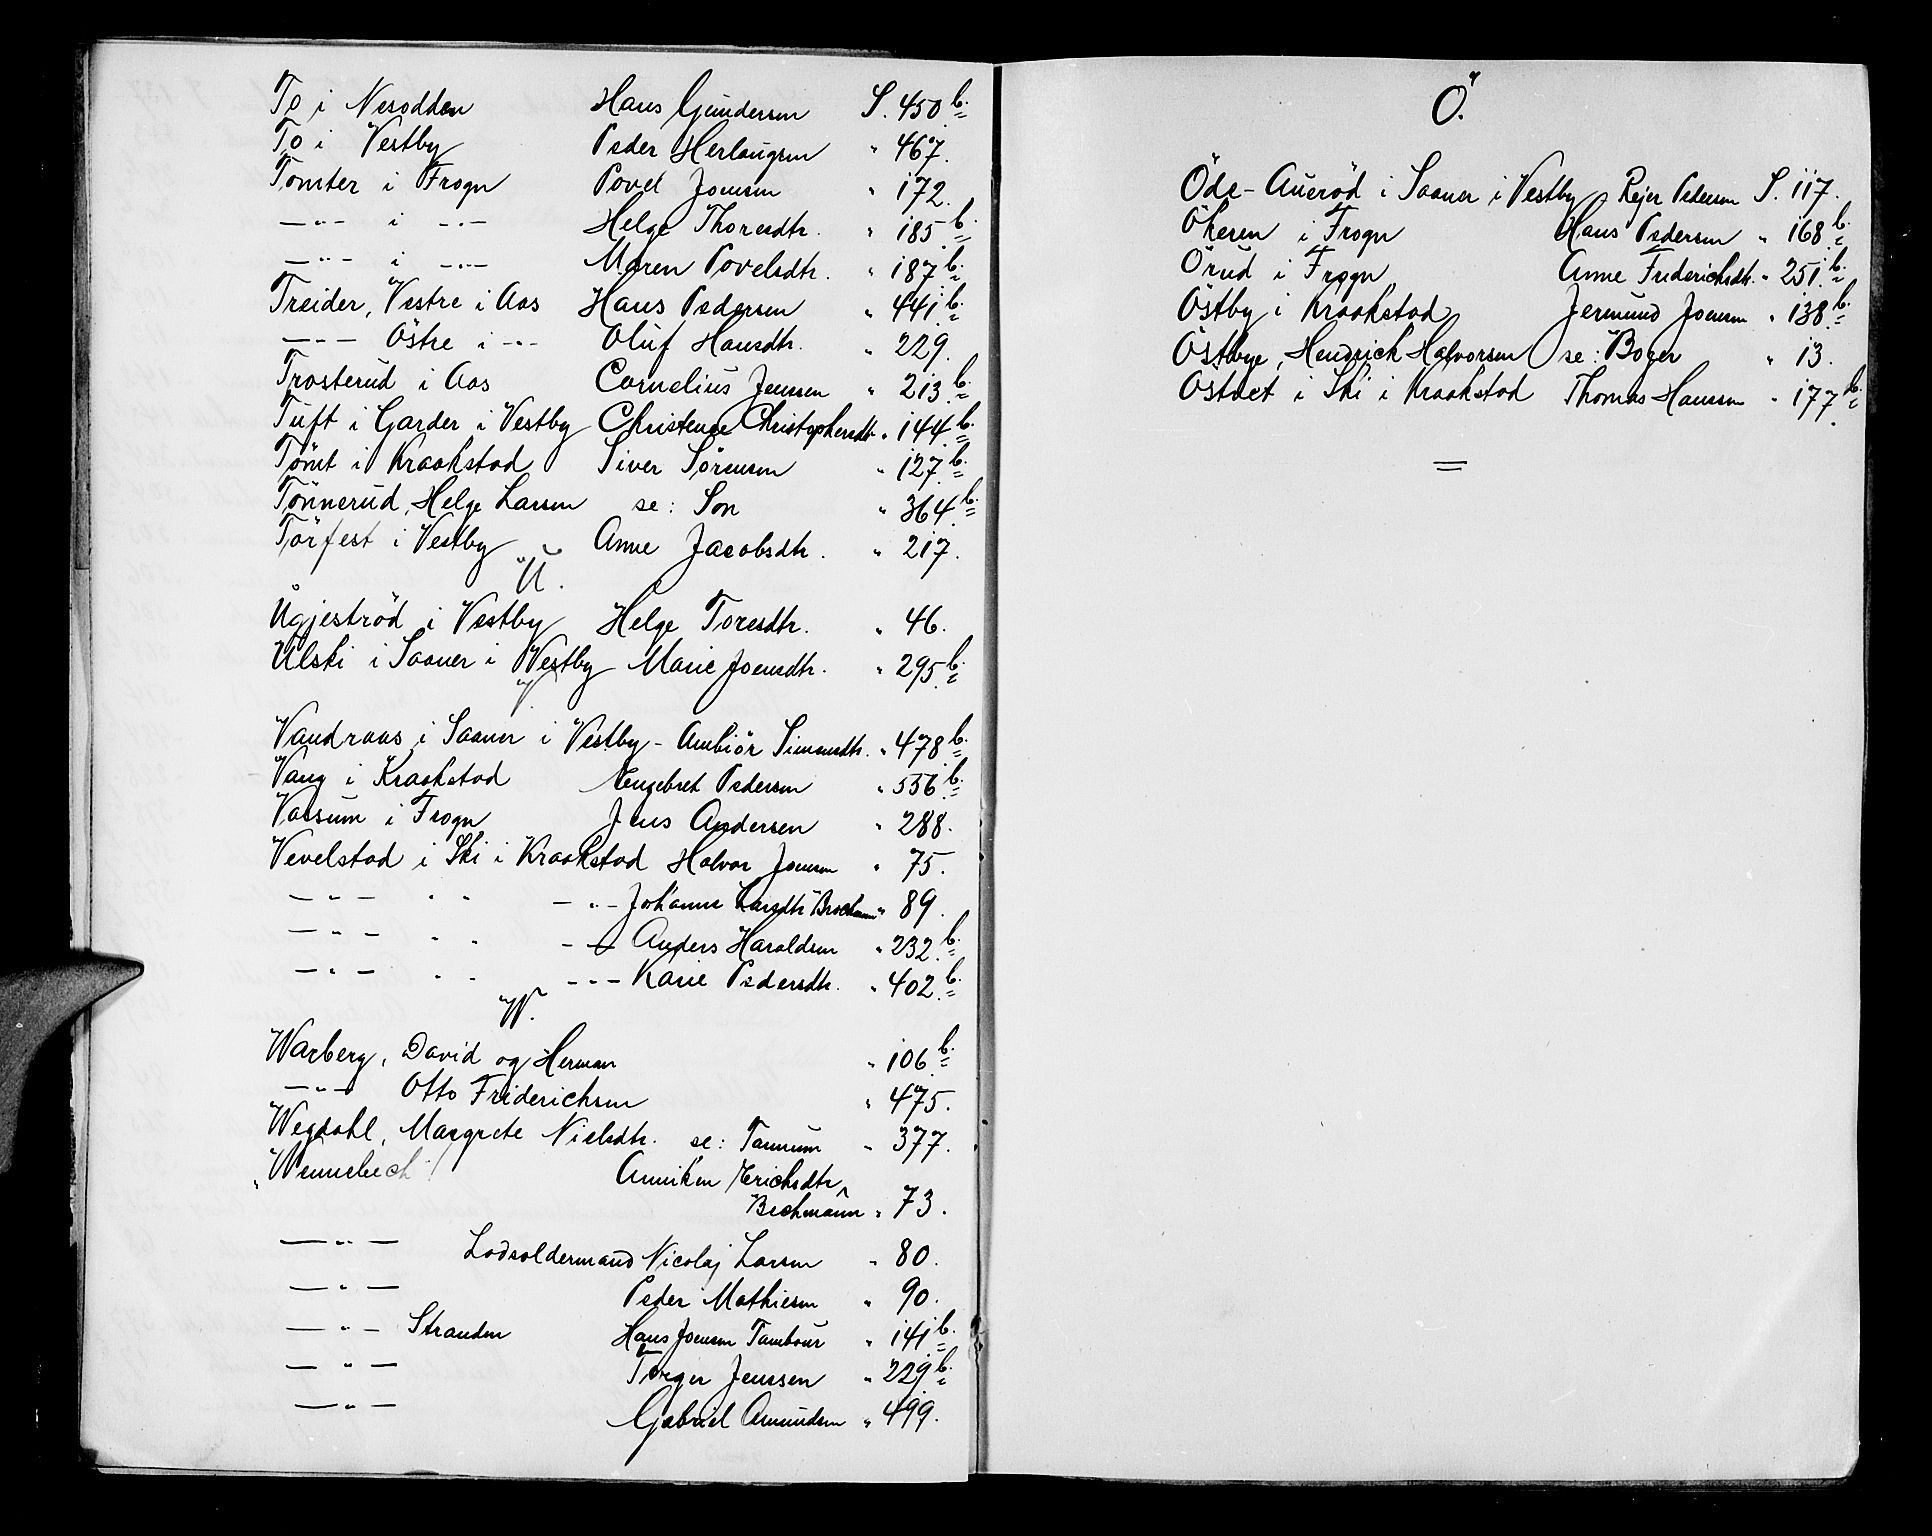 To i Nesodden Hans Gundersen S. 450 b.
To i Vestby Peder Herlaugsen " 467.
Tomter i Frogn Povel Joensen " 172.
—"— i —"— Helge Thoresdtr. " 185 b.
—"— i —"— Maren Povelsdtr. " 187 b.
Treider, Vestre i Aas Hans Pedersen " 441 b.
—"— Östre i —"— Oluf Hansdtr. " 229.
Trosterud i Aas Cornelius Jenssen " 213 b.
Tuft i Garder i Vestby Christense Christophersdtr " 144 b.
Tömt i Kraakstad Siver Sörensen " 127 b.
Tönnerud, Helge Larsen se: Son " 364 b.
Törfest i Vestby Anne Jacobsdtr. " 217.
U.
Ugjeströd i Vestby Helge Toresdtr. " 46.
Ulski i Saaner i Vestby Marie Joensdtr. " 295 b.
V.
Vandraas i Saaner i Vestby - Anbiör Simensdtr. " 478 b.
Vang i Kraakstad Engebret Pedersen " 556 b.
Vassum i Frogn Jens Andersen " 288.
Vevelstad i Ski i Kraakstad Halvor Joensen " 75.
—"— " " —"— Johanne Larsdtr Brochmann " 89.
—"— " " —"— Anders Haraldsen " 232 b.
—"— " " —"— Karie Pedersdtr. " 402 b.
W.
Warberg, David og Herman " 106 b.
—"— Otto Friderichsen " 475.
Wegdahl, Margrete Nielsdtr. se: Tannum " 377.
Wennebech Anniken Erichsdtr
Bechmann " 73.
—"— Lodsoldermand Nicolaj Larsen " 80.
—"— Peder Mathiesen " 90.
—"— Stranden Hans Joensen Tambour " 141 b.
—"— Torger Jenssen " 229 b.
—"— Gabriel Amundsen " 499.
Ö.
Öde-Aueröd i Saaner i Vestby Rejer Pedersen S. 117.
Ökeren i Frogn Hans Pedersen " 168 b.
Örud i Frogn Anne Friderichsdtr. " 251 b.
Östby i Kraakstad Jermund Joensen " 138 b.
Östbye, Hendrick Halvorsen se: Boger " 13.
Östvet i Ski i Kraakstad Thomas Hanssen " 177 b.